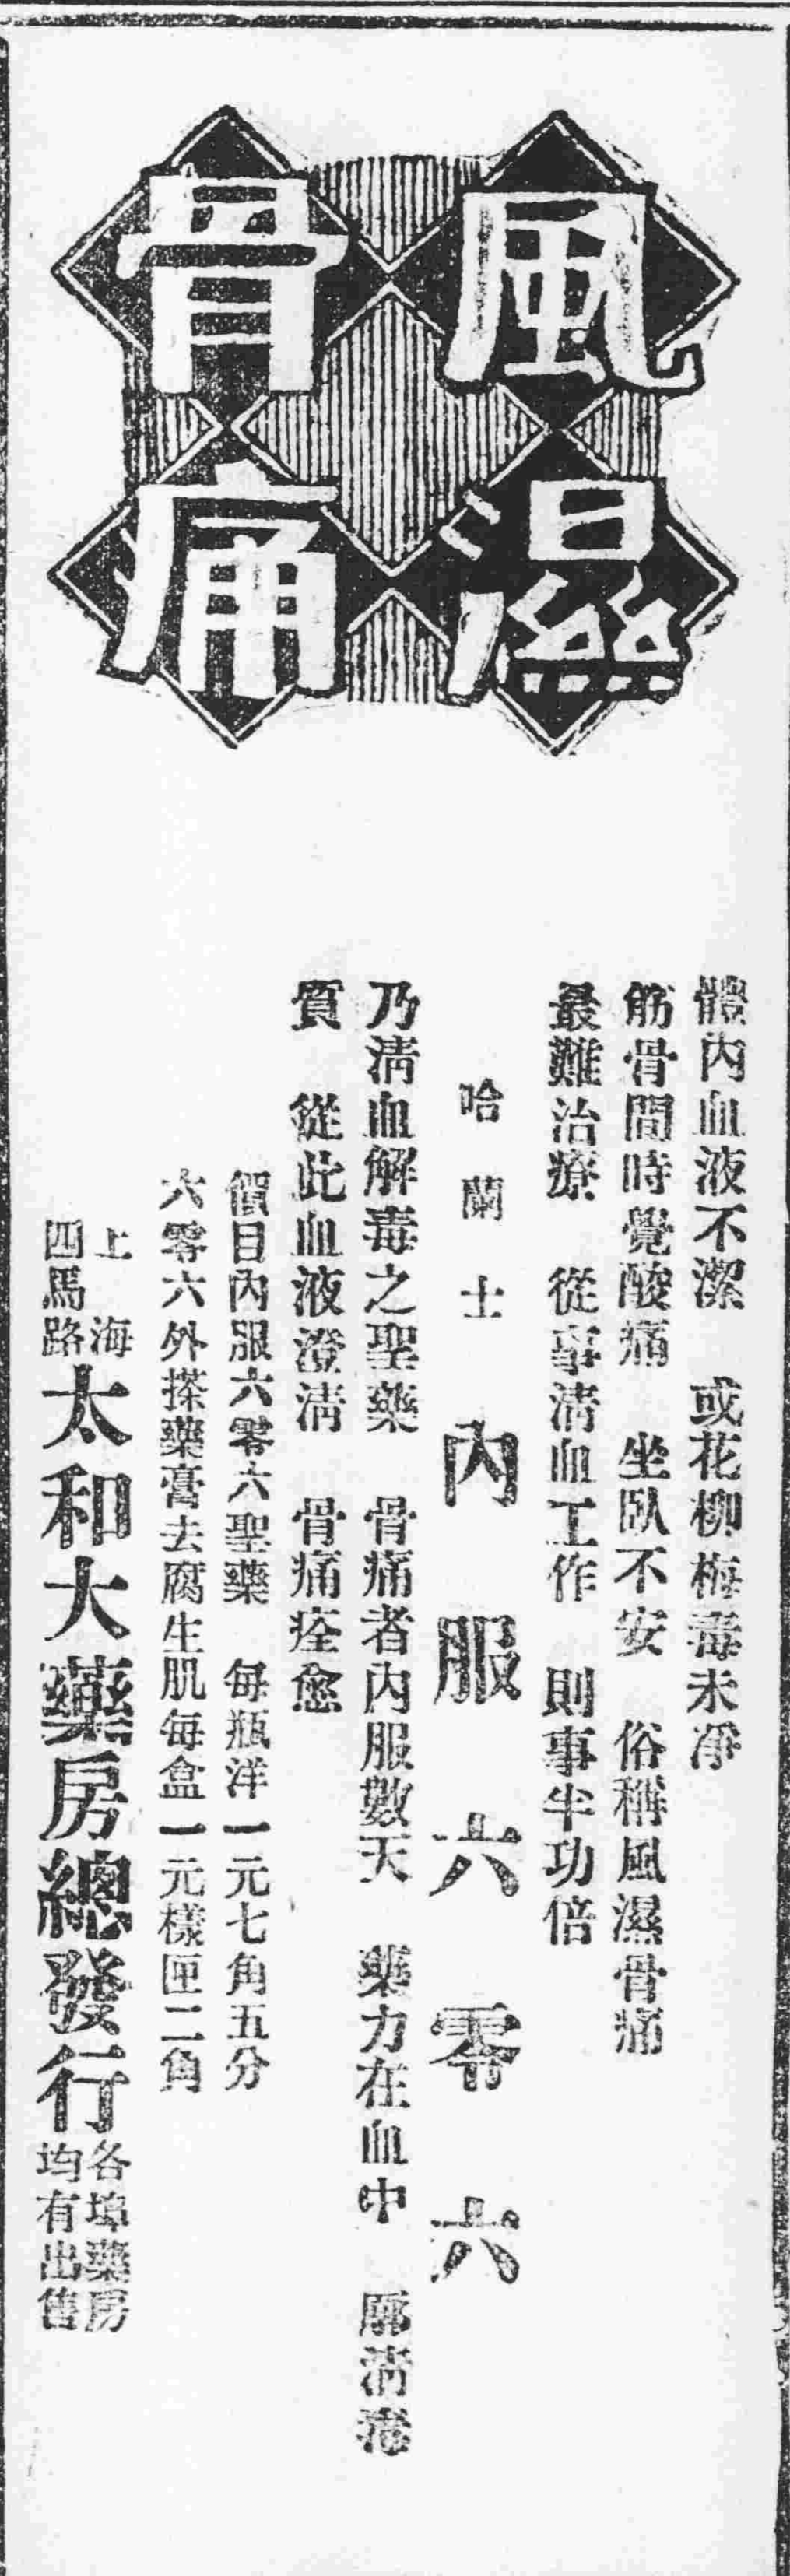 風濕
骨痛
體內血液不潔　或花柳梅毒未淨
筋骨間時覺酸痛　坐臥不安　俗稱風濕骨痛
最難治療　從事清血工作　則事半功倍
哈蘭士　內服六零六
乃清血解毒之聖藥　骨痛者內服數天　藥力在血中　廓清毒
質　從此血液澄清　骨痛痊愈
價目內服六零六聖藥　每瓶洋一元七角五分
六零六外搽藥膏去腐生肌每盒一元樣匣二角
上海
四馬路
太和大藥房總發行
各埠藥房
均有出售